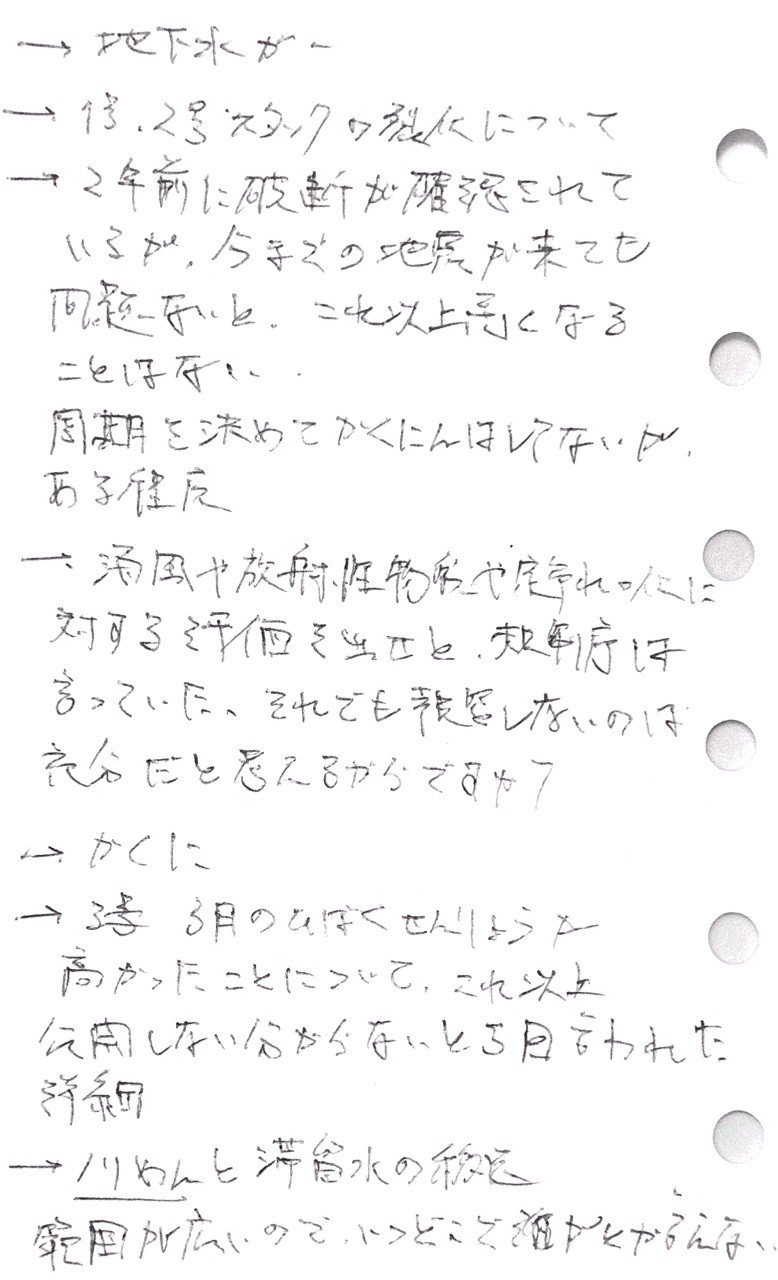 → 地下水がー
→ 1号、2号スタックの劣化について
→ 2年前に破断が確認されて
いるが、今までの地震が来ても
問題ないと、これ以上高くなる
ことはない、
周期を決めてかくにんはしてないが、
ある程度
→ 海風や放射性物質や
対する評価を出せと、規制庁は
言っていた、それでも報告しないのは
充分だと考えるからですか?
→ かくに
→ 3号 3月のひばくせんりょうが
高かったことについて、これ以上
公開しない分からないと5回言われた
詳細
→ ノリめんと滞留水の移送
範囲が広いので、いつどこで誰がとか言えない、